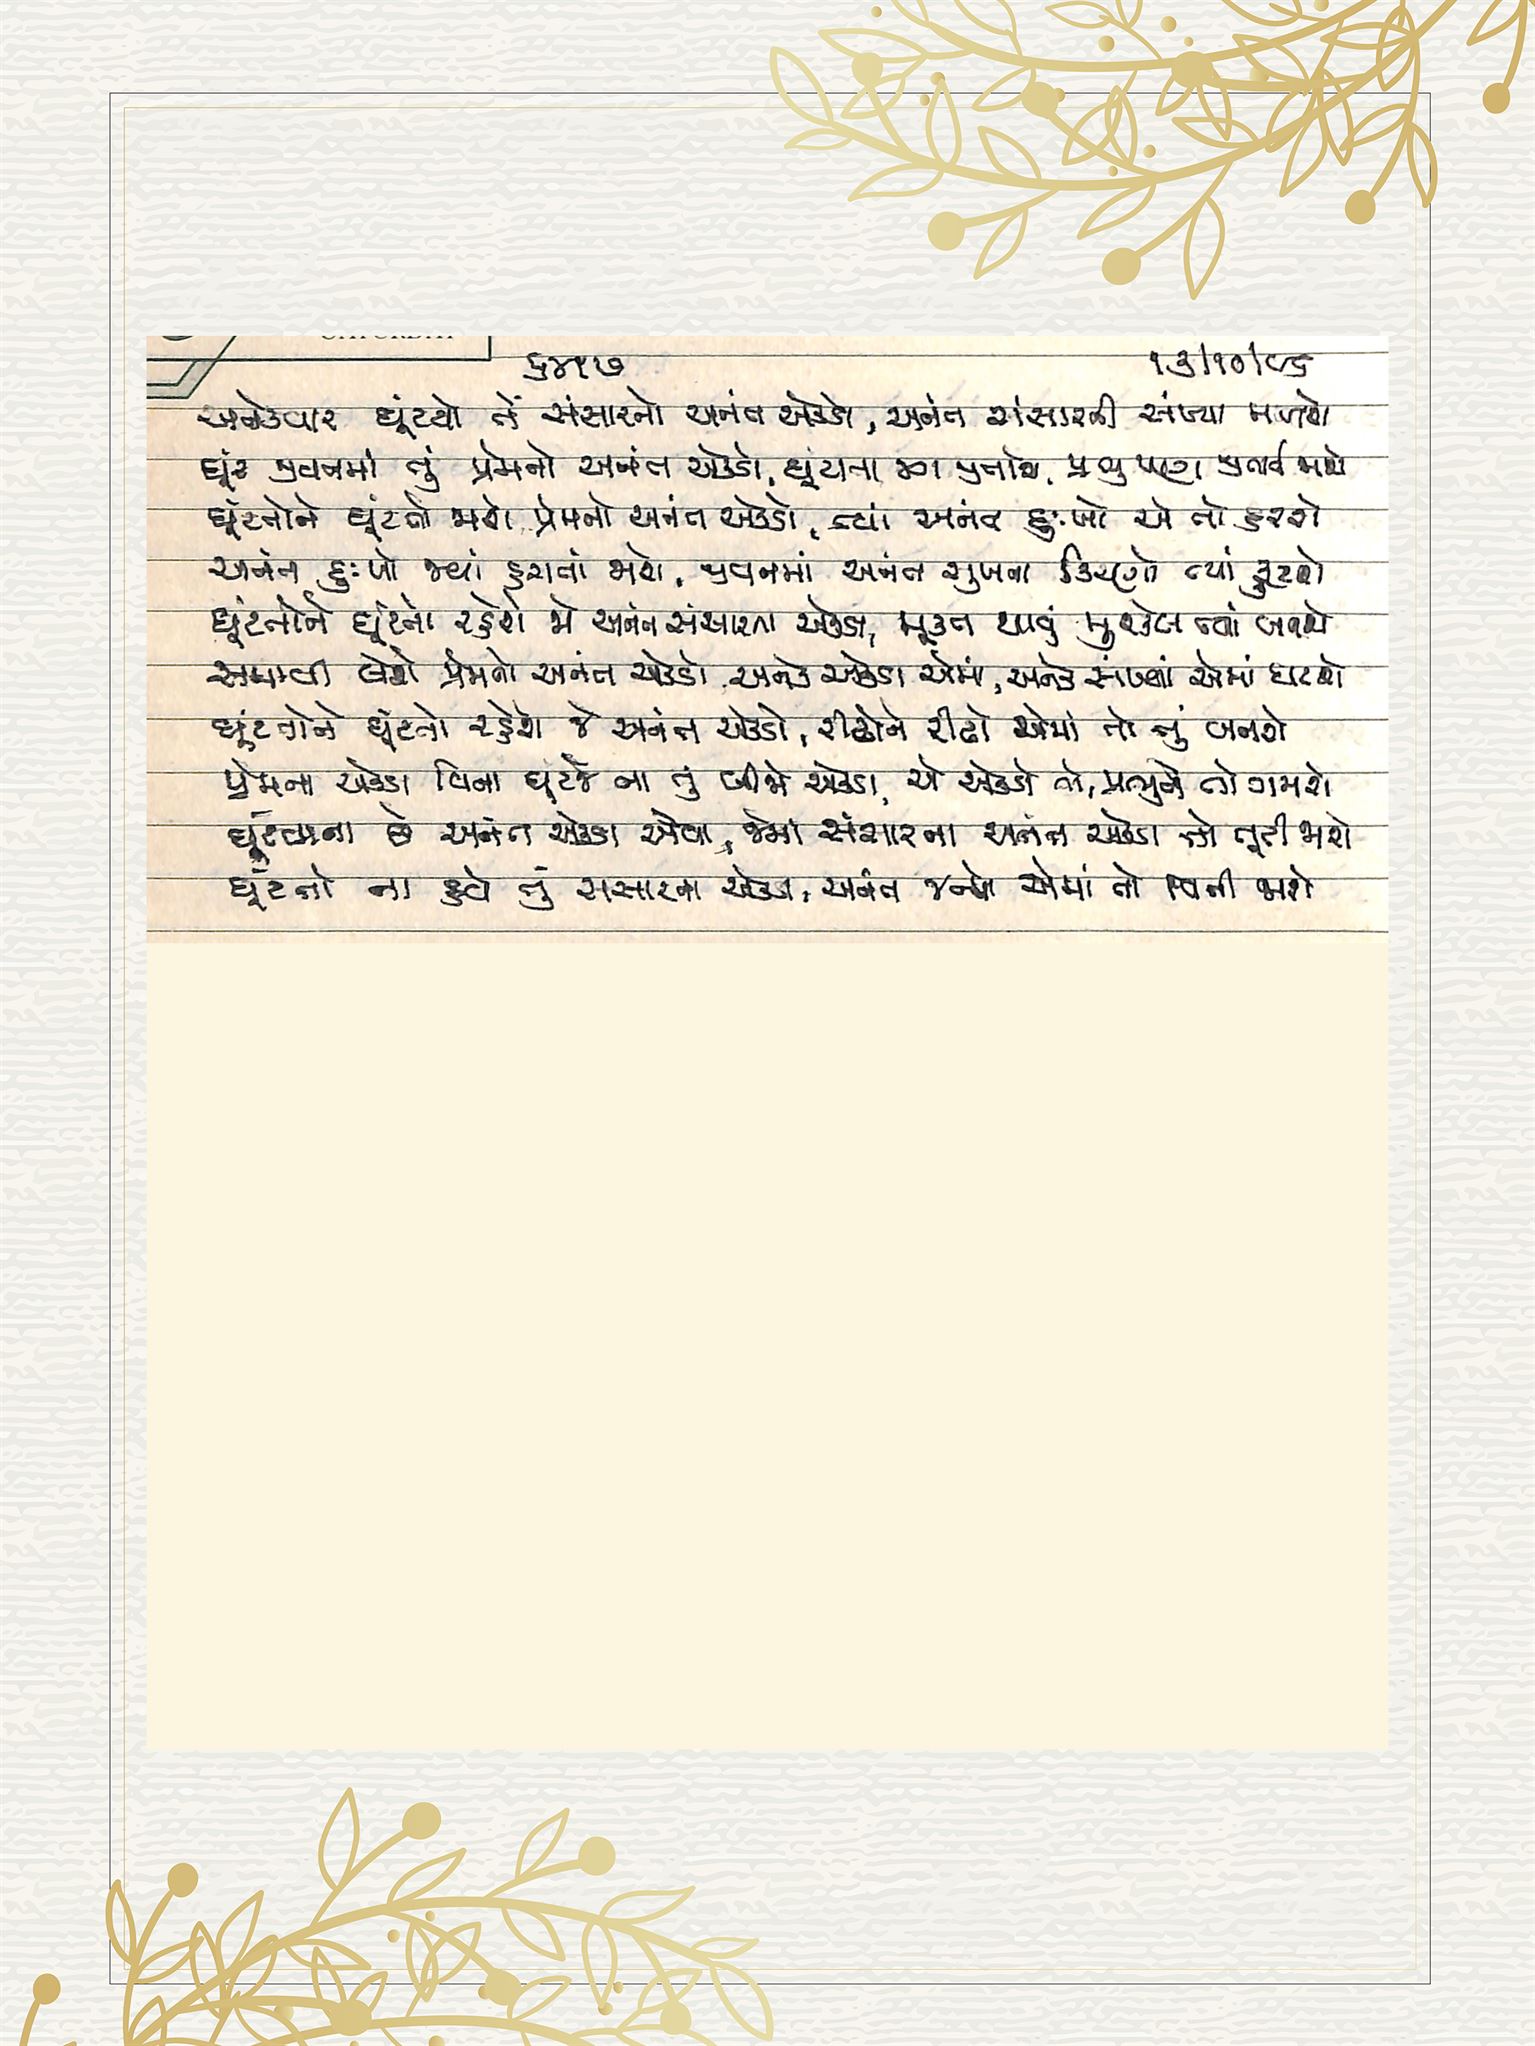 ૬૪૧૭ ૧૩/૧૦/૯૬
અનેકવાર ઘૂંટયો તેં સંસારનો અનંત એકડો, અનંત સંસારની સંખ્યા મળશે
ઘૂંટ જીવનમાં તું પ્રેમનો અનંત એકડો, ઘૂંટાતા પ્રભુ પણ જાશે
ઘૂંટતોને ઘૂંટતો જાશે પ્રેમનો અનંત એકડો, ત્યાં અનંત દુઃખો એ તો હરશે
અનંત દુઃખો જ્યાં હરાતાં જાશે, જીવનમાં અનંત સુખના કિરણો ત્યાં ફૂટશે
ઘૂંટતોને ઘૂંટતો રહેશે જો અનંત સંસારના એકડા, મુક્ત થાવું મુશ્કેલ ત્યાં બનશે
સમાવી લેશે પ્રેમનો અનંત એકડો અનેક એકડા એમાં, અનેક સંખ્યા એમાં ઘટશે
ઘૂંટતોને ઘૂંટતો રહેશે જે અનંત એકડો, રીઢોને રીઢો એમાં તો તું બનશે
પ્રેમના એકડા વિના ઘૂંટજે ના તું બીજો એકડા, એ એકડો તો, પ્રભુને તો ગમશે
ઘૂંટવાના છે અનંત એકડા એવા, જેમાં સંસારના અનંત એકડા તો તૂટી જાશે
ઘૂંટતો ના હવે તું સંસારના એકડા, અનંત જન્મો એમાં તો વિતી જાશે